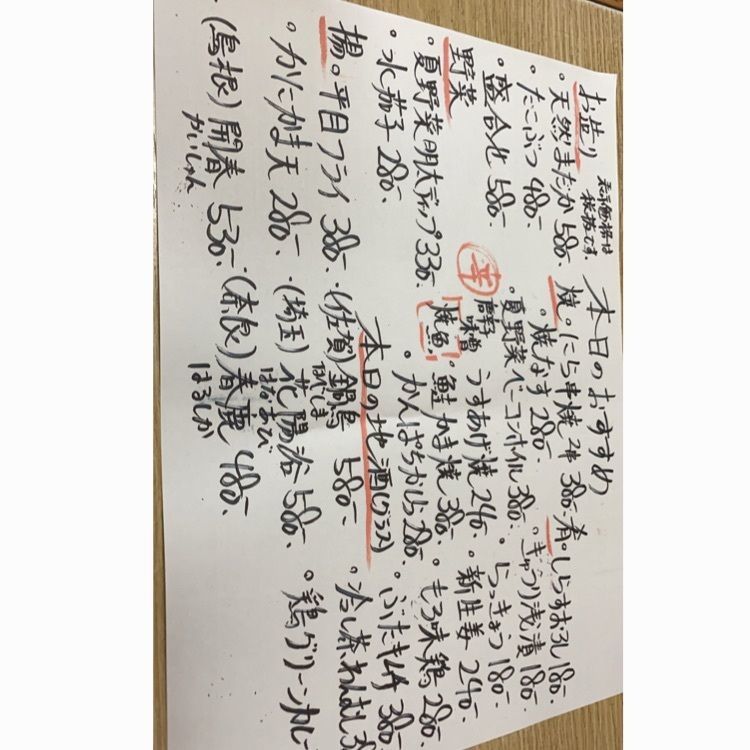 本日のおすすめ
表示価格は
税抜です。
お造り
。天然まだか 580-
。たこぶつ 480-
。盛合せ 580-
野菜
。夏野菜明太ディップ 330-
。水茄子 280-
揚。平目フライ 380-
。かにかま天 280-
焼。にら串焼 2本 380-
。焼なす 280-
。夏野菜ベーコンホイル 380-
半 高野味噌 うすあげ焼 240-
焼魚 。鮭かま焼 380-
。かんぱちから 280-
肴。しらすおろし 180-
。きゅうり浅漬 180-
。らっきょう 180-
。新生姜 240-
。もろ味鶏 280-
。ぶたキムチ 380-
。冷し茶わんむし 3
。鶏グリーンカレー
本日の地酒(グラス)
・(佐賀)鍋島 580-
なべしま
・(埼玉)花陽浴 580-
はなあび
・(奈良)春鹿 480-
はるしか
・(島根)開春 530-
かいしゅん